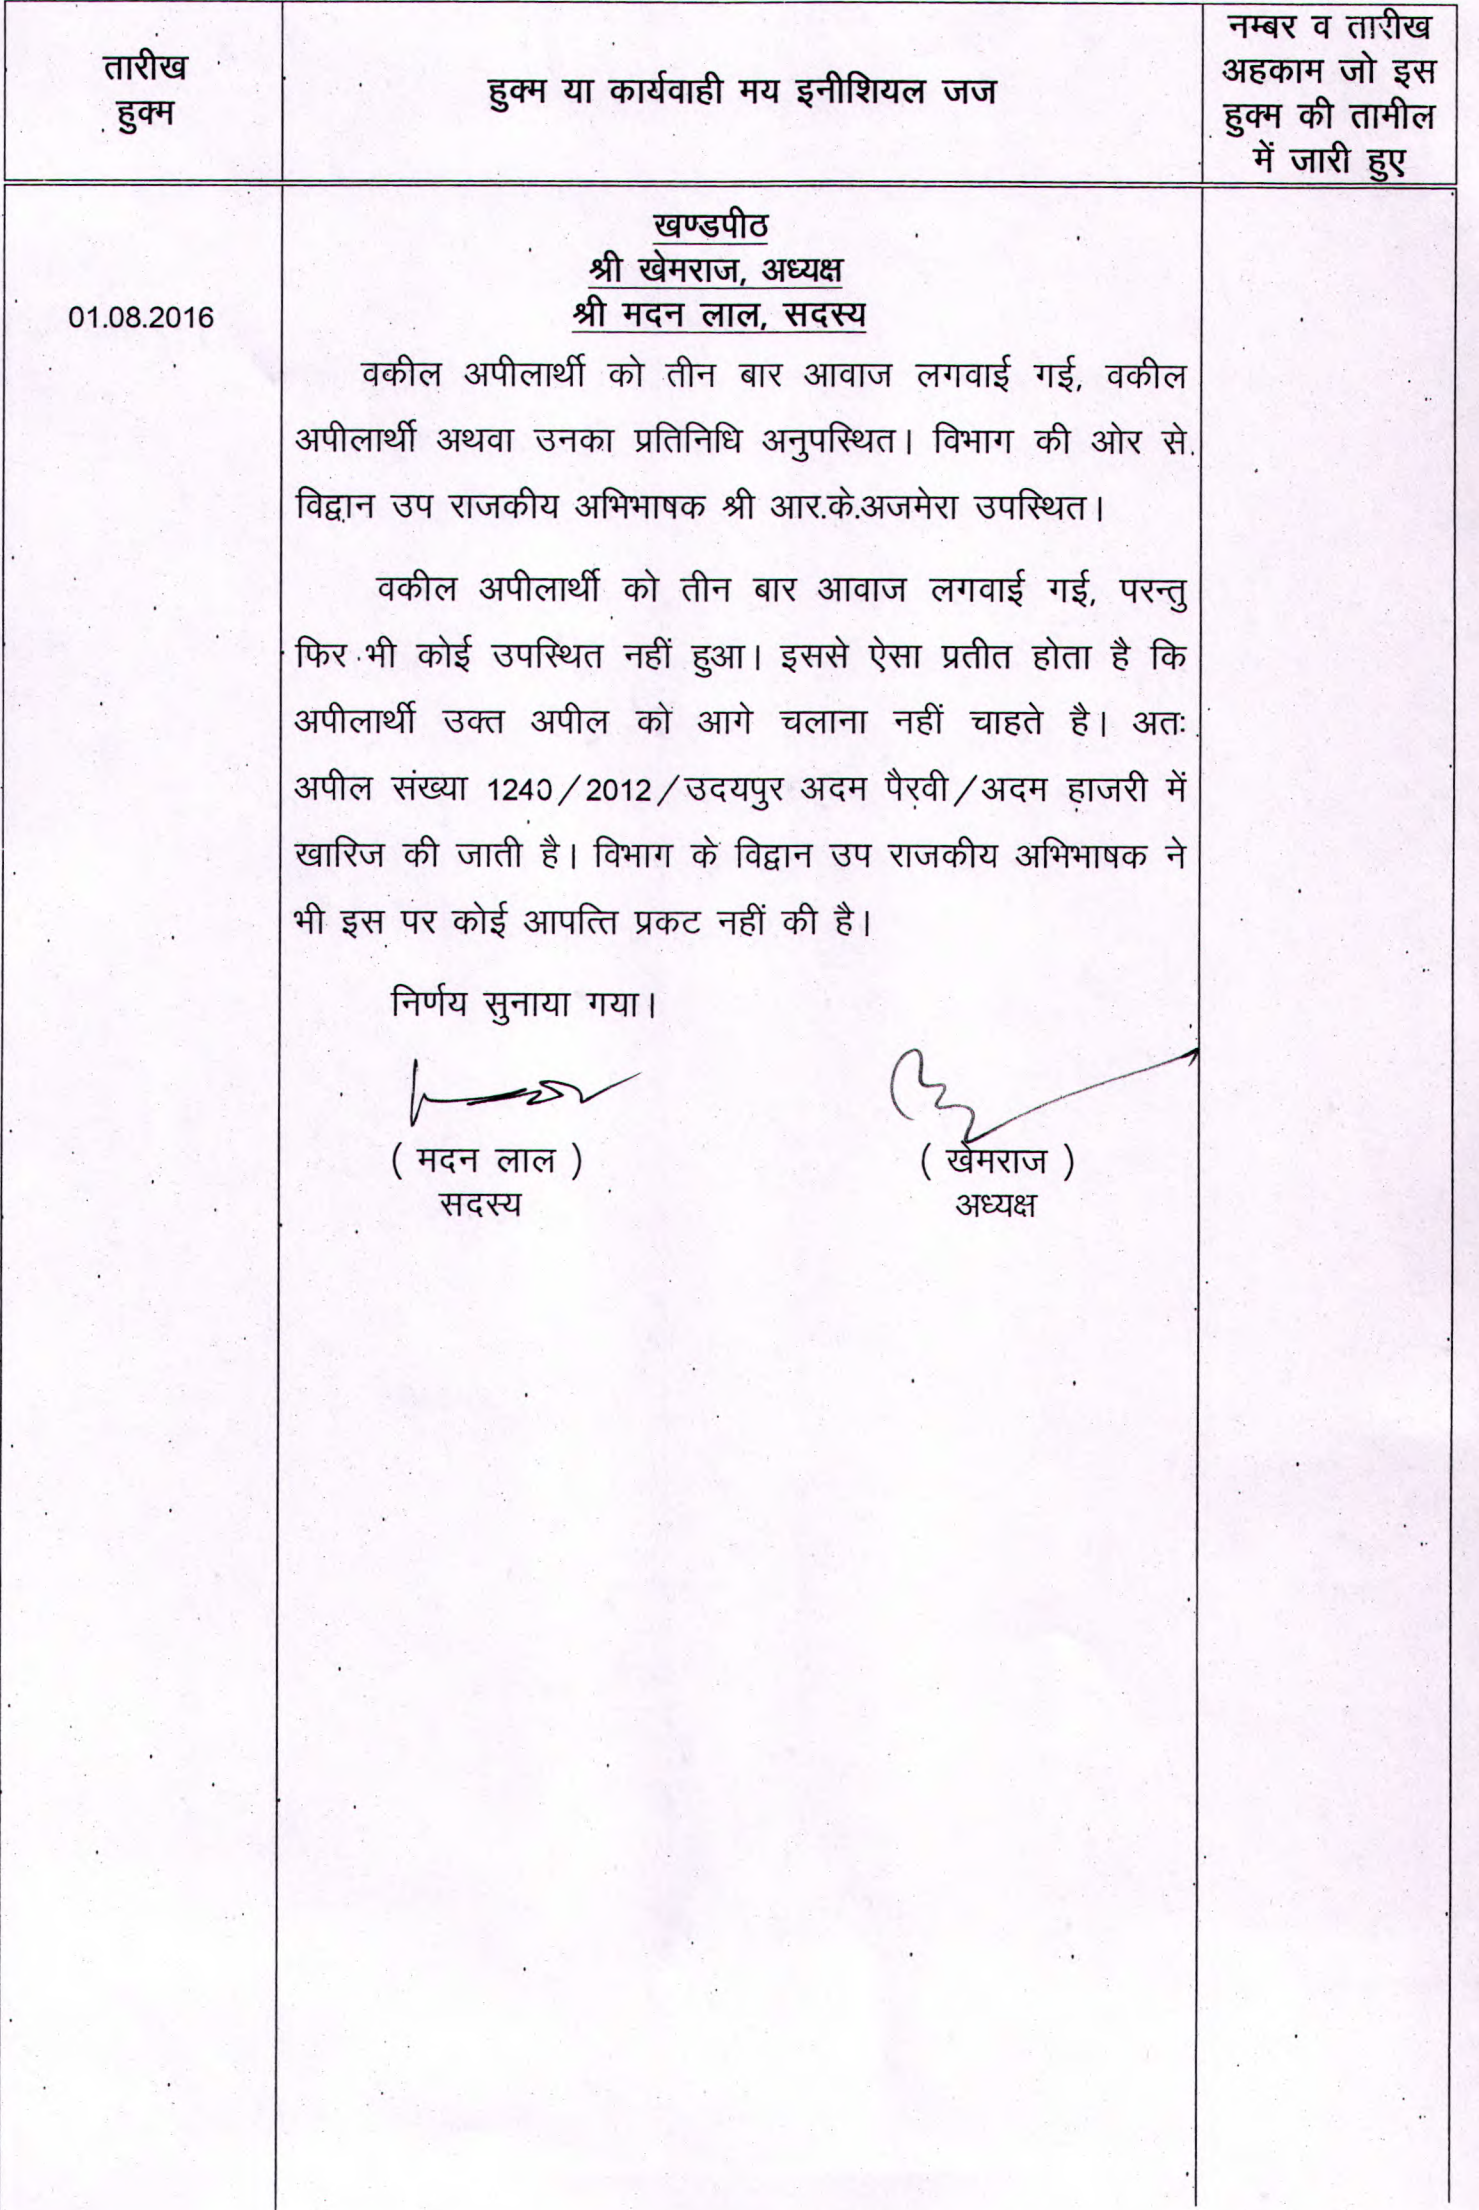 तारीख
हुक्म
हुक्म या कार्यवाही मय इनीशियल जज
नम्बर व तारीख
अहकाम जो इस
हुक्म की तामील
में जारी हुए
01.08.2016
खण्डपीठ
श्री खेमराज, अध्यक्ष
श्री मदन लाल, सदस्य
वकील अपीलार्थी को तीन बार आवाज लगवाई गई, वकील
अपीलार्थी अथवा उनका प्रतिनिधि अनुपस्थित। विभाग की ओर से
विद्वान उप राजकीय अभिभाषक श्री आर.के.अजमेरा उपस्थित।
वकील अपीलार्थी को तीन बार आवाज लगवाई गई, परन्तु
फिर भी कोई उपस्थित नहीं हुआ। इससे ऐसा प्रतीत होता है कि
अपीलार्थी उक्त अपील को आगे चलाना नहीं चाहते है। अतः
अपील संख्या 1240/2012/उदयपुर अदम पैरवी/अदम हाजरी में
खारिज की जाती है। विभाग के विद्वान उप राजकीय अभिभाषक ने
भी इस पर कोई आपत्ति प्रकट नहीं की है।
निर्णय सुनाया गया।
( मदन लाल )
सदस्य
( खेमराज )
अध्यक्ष